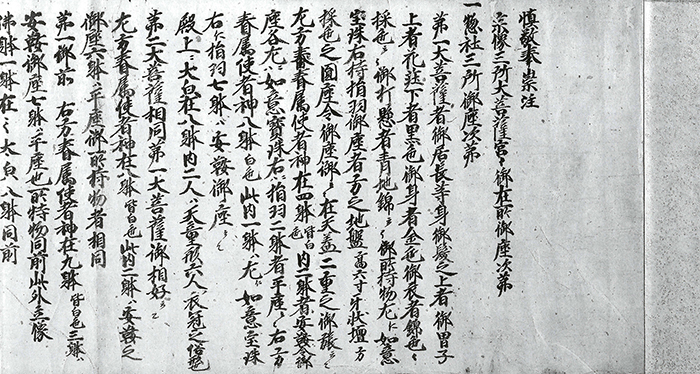 慎敬奉崇注
宗像三所大菩薩宮〻御在所御座次第
一惣社三所御座次第
第一大菩薩者御居長等身御長之上者御冒子
上者花下者黒色御身者金色御衣者錦色〻
採色〻御打懸者青地錦〻御所持物左ニ如意
宝珠右持指羽御座者方之地盤高六寸牙状壇方
採色之圓座令御座御〻在天蓋二重之御帳〻
左方眷属使者神在四躰皆白色内二躰者安鬘御
座各左ニ如意寶珠右ニ指羽二躰者平座〻右方
眷属使者神八躰白色此内一躰ハ左ニ如意宝珠
右ニ指羽七躰ハ安鬘御座〻
殿上ニ大皃在八躰内二人ハ天童形六人ハ衣冠之俗也
第二大菩薩相同第一大菩薩御相好
左方眷属使者神在八躰皆白色此内二躰ハ安鬘之
御座六躰ハ平座御所持物者相同
第一御前 右方眷属使者神在九躰皆白色三躰ハ
安鬘御座七躰ハ平座也所持物同前此外立像
佛躰一躰在〻大皃八躰同前